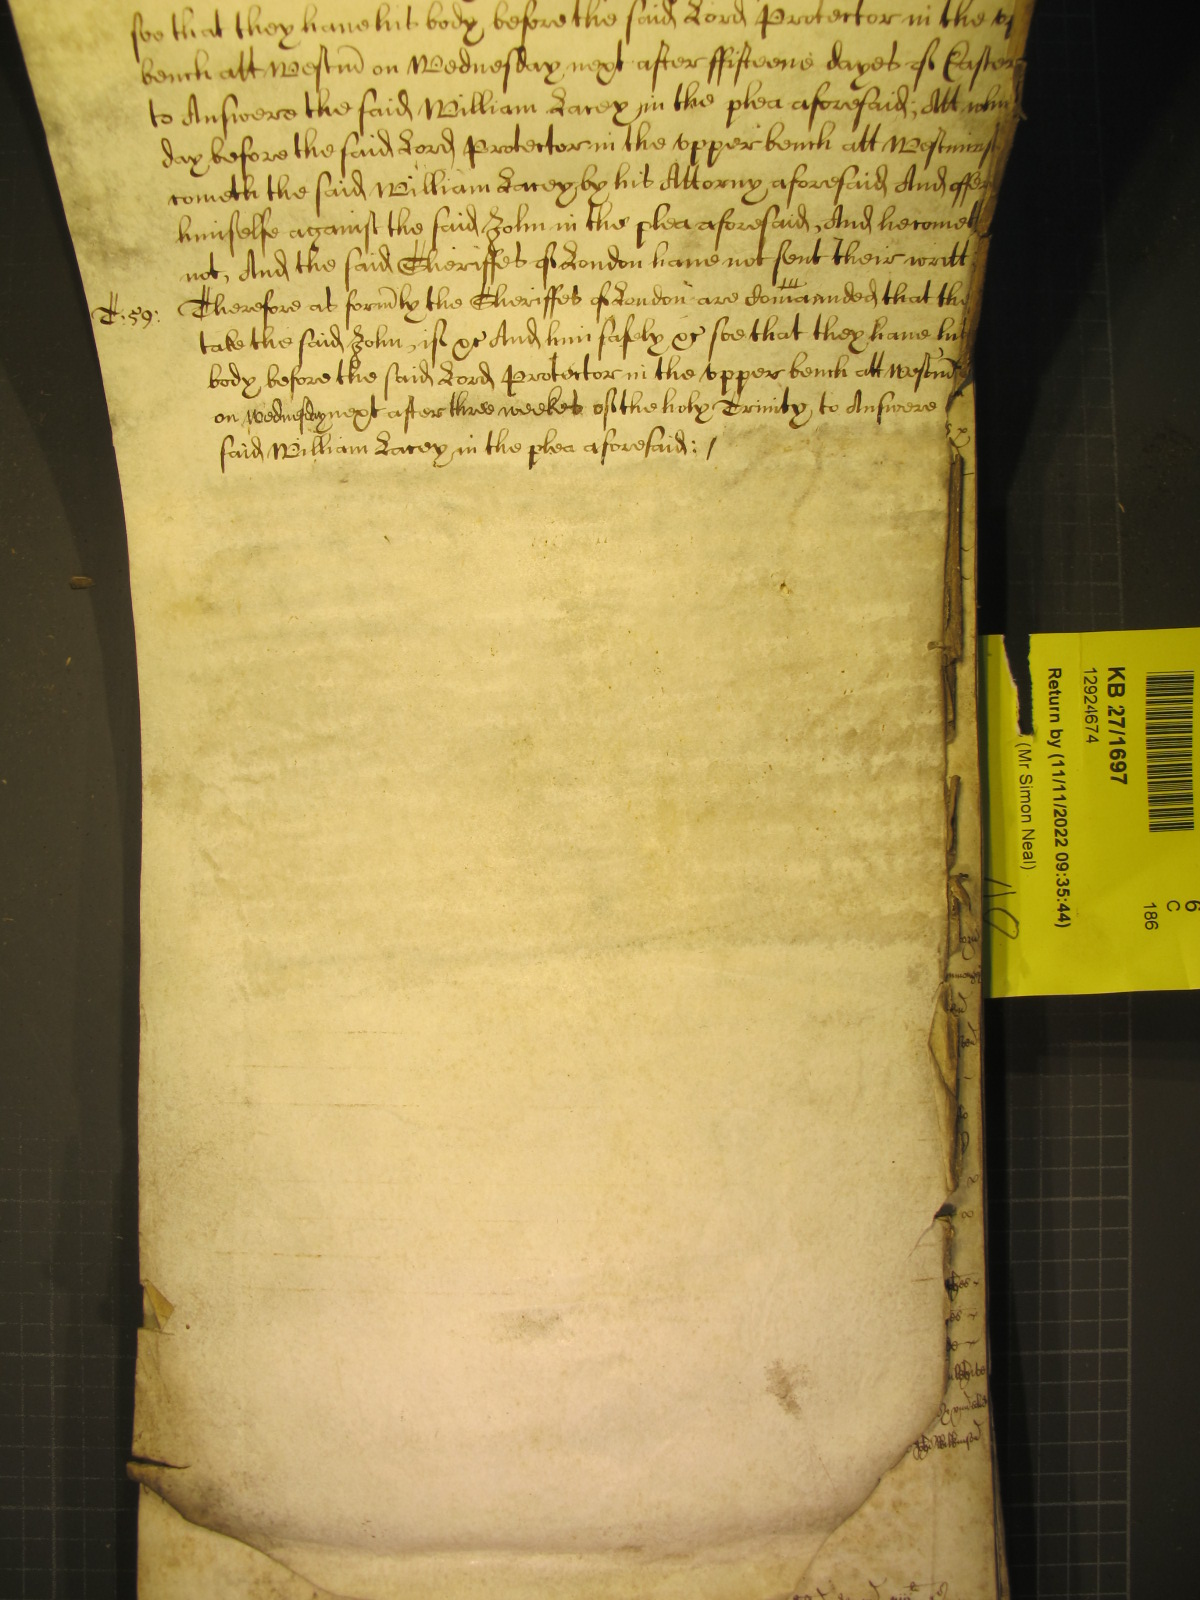 soe that they haue his body before the said Lord Protector in the vp
bench att Westm̄ on Wednesday next after ffifteene dayes of Easter
to Answere the said William Lacey in the plea aforesaid; Att whi
day before the said Lord Protector in the vpper bench att Westminst
cometh the said William Lacey by his Attorny aforesaid And offer
himselfe against the said John in the plea aforesaid, And he comet
not, And the said Sheriffes of London haue not sent their writt
T: 59: Therefore as form̄ly the Sheriffes of London are com̄anded that the
take the said John, if &c And him safely &c soe that they haue his
body before the said Lord Protector in the vpper bench att Westm̄
on Wednesday next after three weekes of the holy Trinity, to Answere
said William Lacey in the plea aforesaid: /
KB 27/1697
12924674
Return by (11/11/2022 09:35:44)
(Mr Simon Neal)
6
C
186